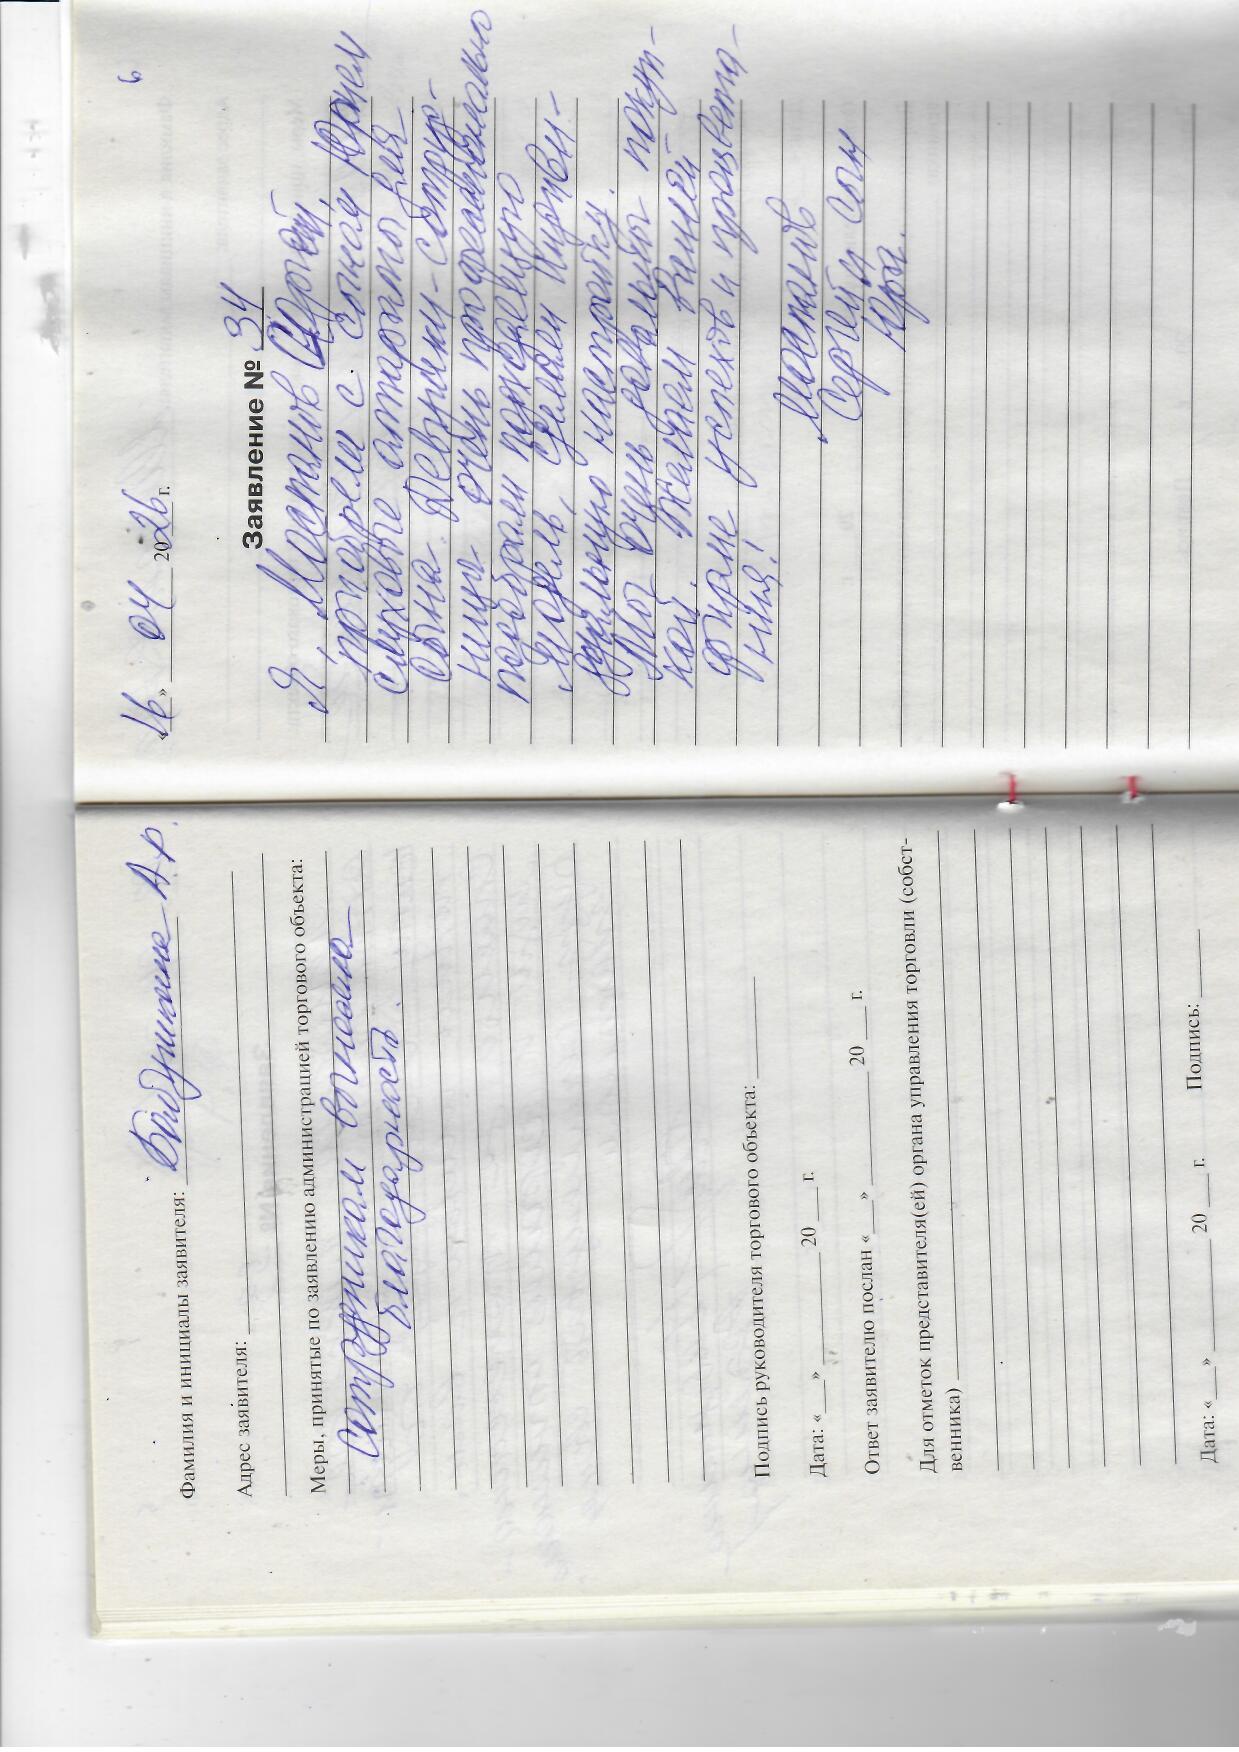 Фамилия и инициалы заявителя: Бабушкина А.Р.
Адрес заявителя:
Меры, принятые по заявлению администрацией торгового объекта:
Сотрудникам вынесена
благодарность.
Подпись руководителя торгового объекта:
Дата: «___» ________ 20 ___ г.
Ответ заявителю послан «___» ________ 20 ___ г.
Для отметок представителя(ей) органа управления торговли (собст-
венника)
Дата: «___» ________ 20 ___ г. Подпись:
6
«16» 04 2026 г.
Заявление № 34
Я, Мостанов Сергей,
приобрели с сыном Юрием
слуховые аппараты для
сына. Девушки-сотруд-
ницы очень профессионально
подобрали подходящую
модель, сделали индиви-
дуальную настройку.
Мы очень довольны покуп-
кой. Желаем Вашей
фирме успехов и процвета-
ния!
Мостанов
Сергей и сын
Юра.